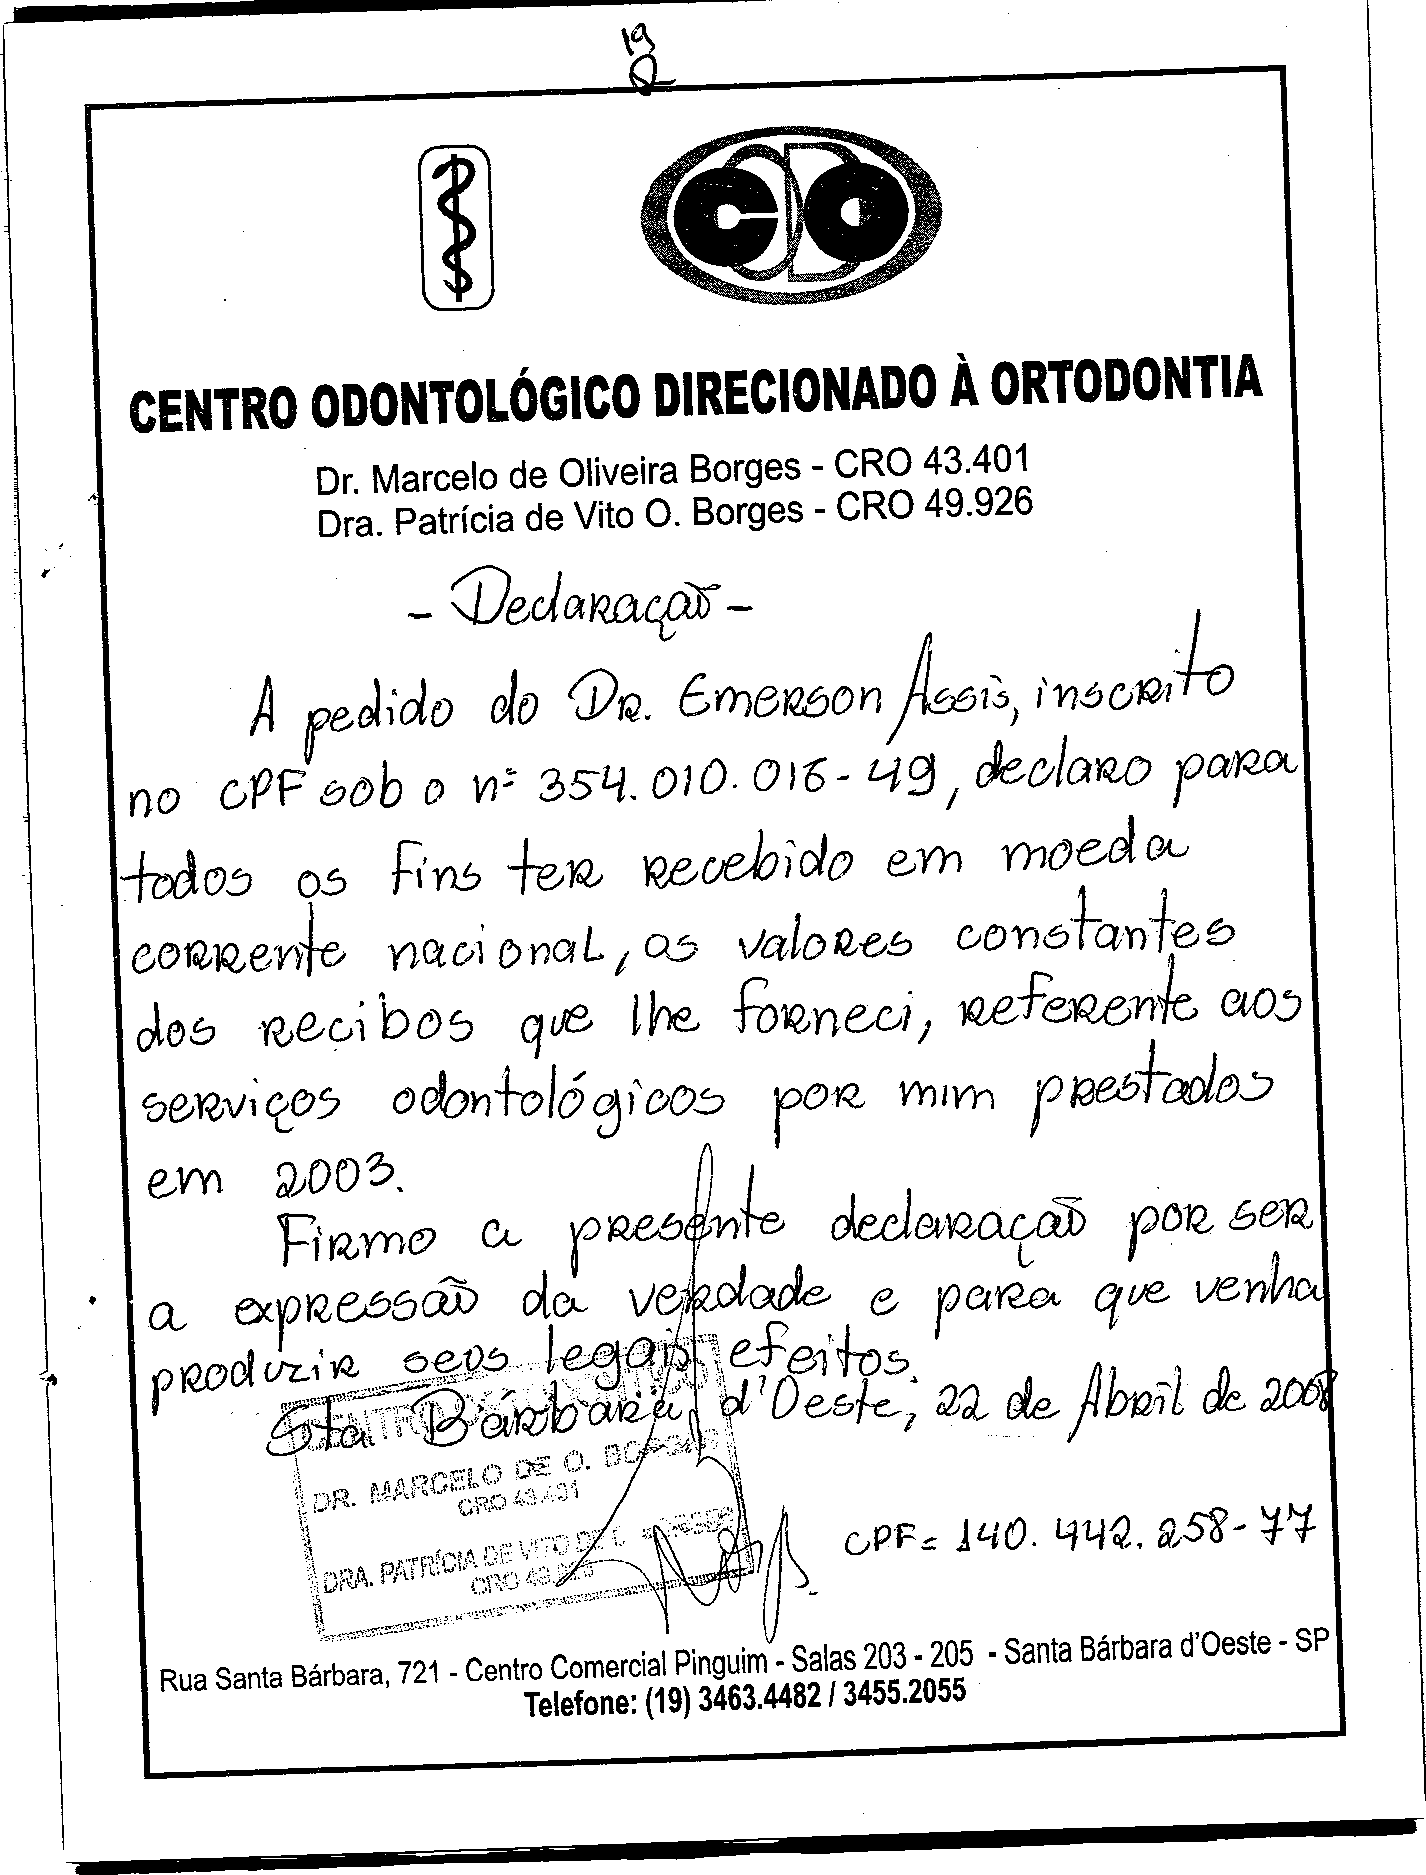 19
CDO
CENTRO ODONTOLÓGICO DIRECIONADO À ORTODONTIA
Dr. Marcelo de Oliveira Borges - CRO 43.401
Dra. Patrícia de Vito O. Borges - CRO 49.926
- Declaração -
A pedido do Dr. Emerson Assis, inscrito
no CPF sob o nº 354.010.016-49, declaro para
todos os fins ter recebido em moeda
corrente nacional, os valores constantes
dos recibos que lhe forneci, referente aos
serviços odontológicos por mim prestados
em 2003.
Firmo a presente declaração por ser
a expressão da verdade e para que venha
produzir seus legais efeitos.
Sta Bárbara d'Oeste, 22 de Abril de 2008
CENTRO
DR. MARCELO DE O. BORGES
CRO 43.401
DRA. PATRÍCIA DE VITO
CRO
CPF= 140.442.258-77
Rua Santa Bárbara, 721 - Centro Comercial Pinguim - Salas 203 - 205 - Santa Bárbara d'Oeste - SP
Telefone: (19) 3463.4482 / 3455.2055